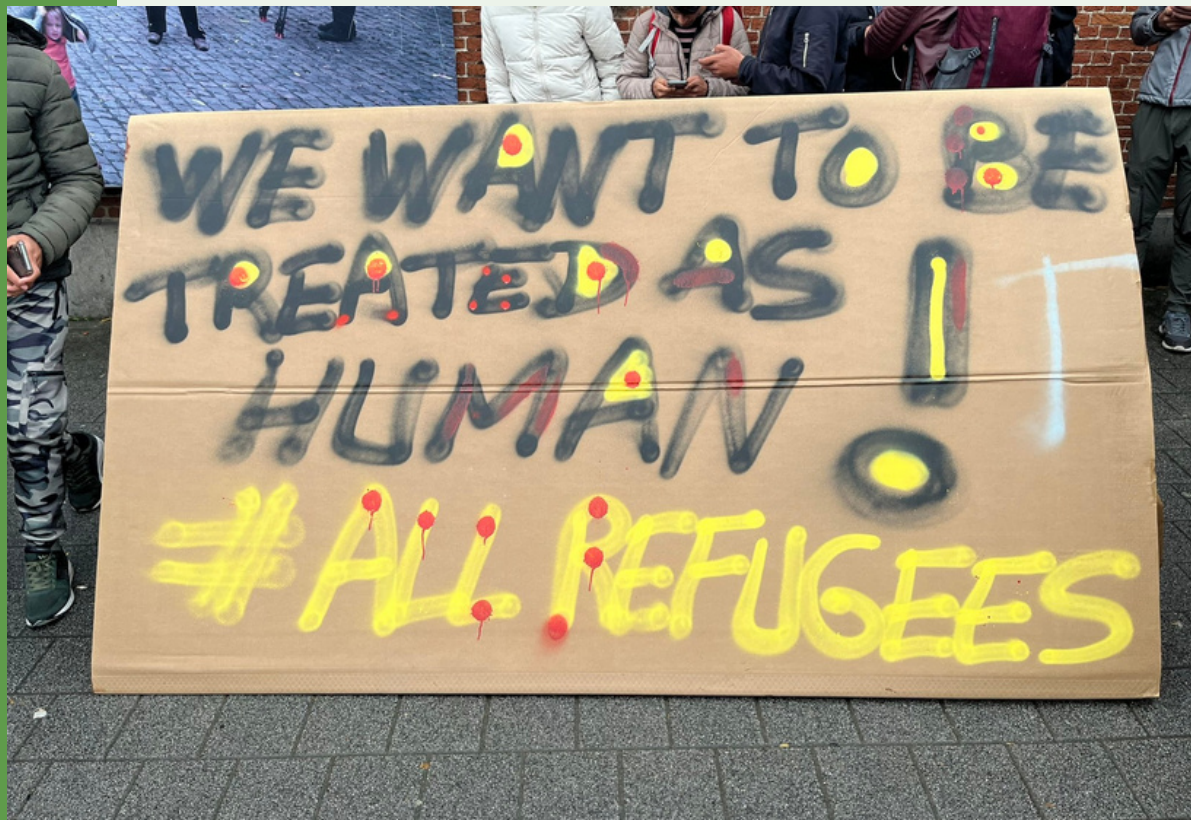 WE WANT TO BE
TREATED AS
HUMAN !
# ALL REFUGEES
T